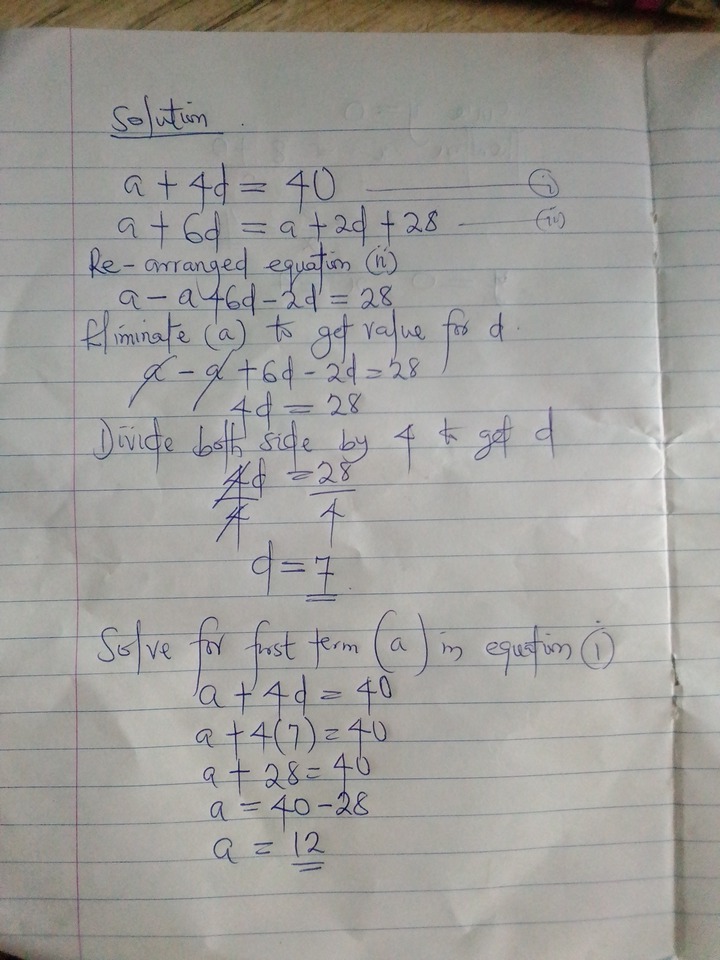 Solution.
a + 4d = 40 ——— (i)
a + 6d = a + 2d + 28 —— (ii)
Re-arranged equation (ii)
a - a + 6d - 2d = 28
Eliminate (a) to get value for d.
a - a + 6d - 2d = 28
4d = 28
Divide both side by 4 to get d
4d = 28
4 4
d = 7
Solve for first term (a) in equation (i)
a + 4d = 40
a + 4(7) = 40
a + 28 = 40
a = 40 - 28
a = 12